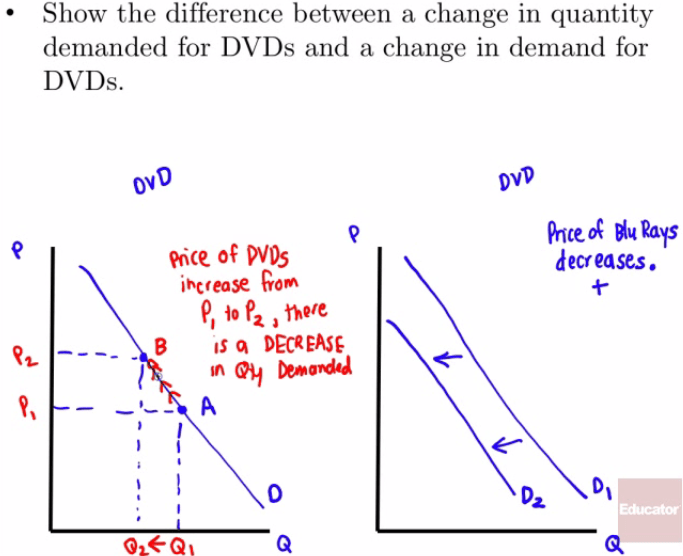 • Show the difference between a change in quantity
demanded for DVDs and a change in demand for
DVDs.
DVD
P
Price of DVDs
increase from
P₁ to P₂, there
is a DECREASE
in Qty Demanded
P₂
B
P₁
A
D
Q₂ ← Q₁
Q
DVD
P
Price of Blu Rays
decreases.
+
D₂
D₁
Q
Educator